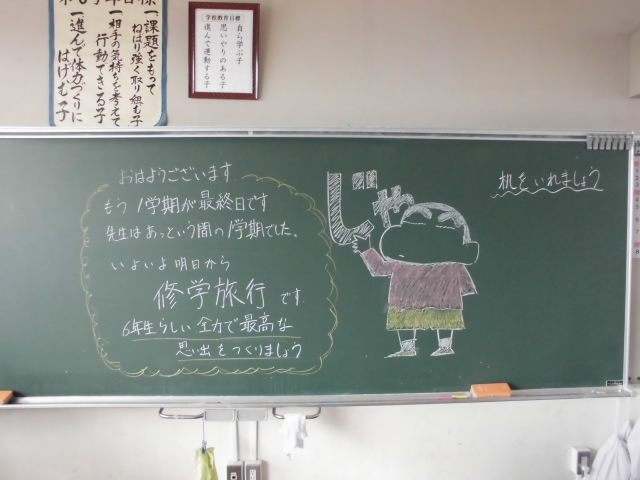 一課題をもって
ねばり強く取り組む子
一相手の気持ちを考えて
行動できる子
一進んで体力づくりに
はげむ子
学校教育目標
自ら学ぶ子
思いやりのある子
進んで運動する子
おはようございます
もう1学期が最終日です
先生はあっという間の1学期でした。
いよいよ明日から
修学旅行です
6年生らしい全力で最高な
思い出をつくりましょう
机をいれましょう